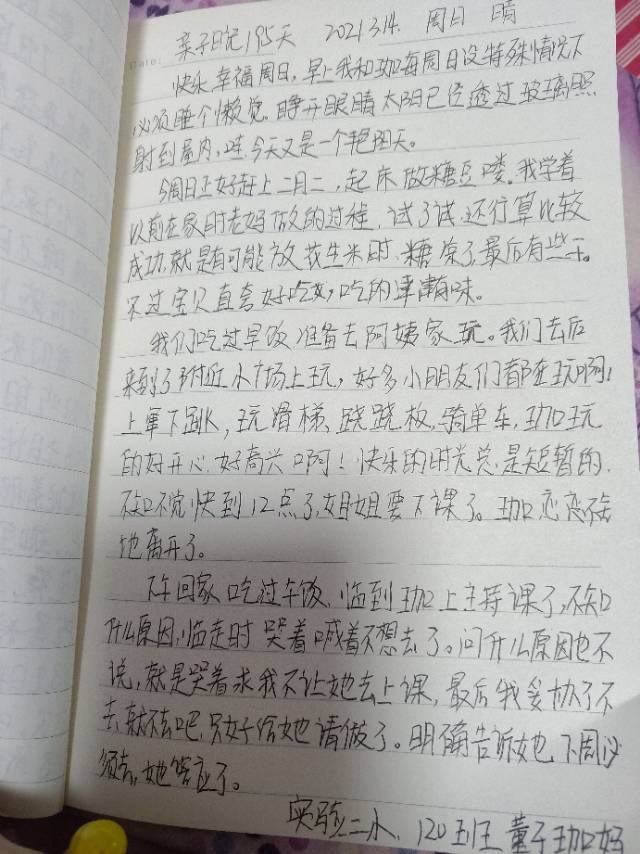 Date:
亲子日记195天 2021.3.14. 周日 晴
快乐幸福周日，早上我和珈每周日没特殊情况下
必须睡个懒觉。睁开眼睛太阳已经透过玻璃照
射到屋内，哇，今天又是一个艳阳天。
今周日正好赶上二月二，起床做糖豆喽。我学着
以前在家时老妈做的过程，试了试，还行算比较
成功，就是有可能放花生米时，糖凉了，最后有些干。
不过宝贝直夸好吃，吃的津津有味。
我们吃过早饭准备去阿姨家玩。我们去后
来到了附近小广场上玩，好多小朋友们都在玩啊，
上窜下跳，玩滑梯、跷跷板，骑单车，珈玩
的好开心，好高兴啊！快乐的时光总是短暂的，
不知不觉快到12点了，姐姐要下课了。珈恋恋不舍
地离开了。
下午回家吃过午饭，临到珈上主持课了，不知
什么原因，临走时哭着喊着不想去了。问什么原因也不
说，就是哭着求我不让她去上课，最后我妥协了不
去就不去吧，只好给她请假了。明确告诉她下周必
须去，她答应了。
实验二小、120班 董子珈妈